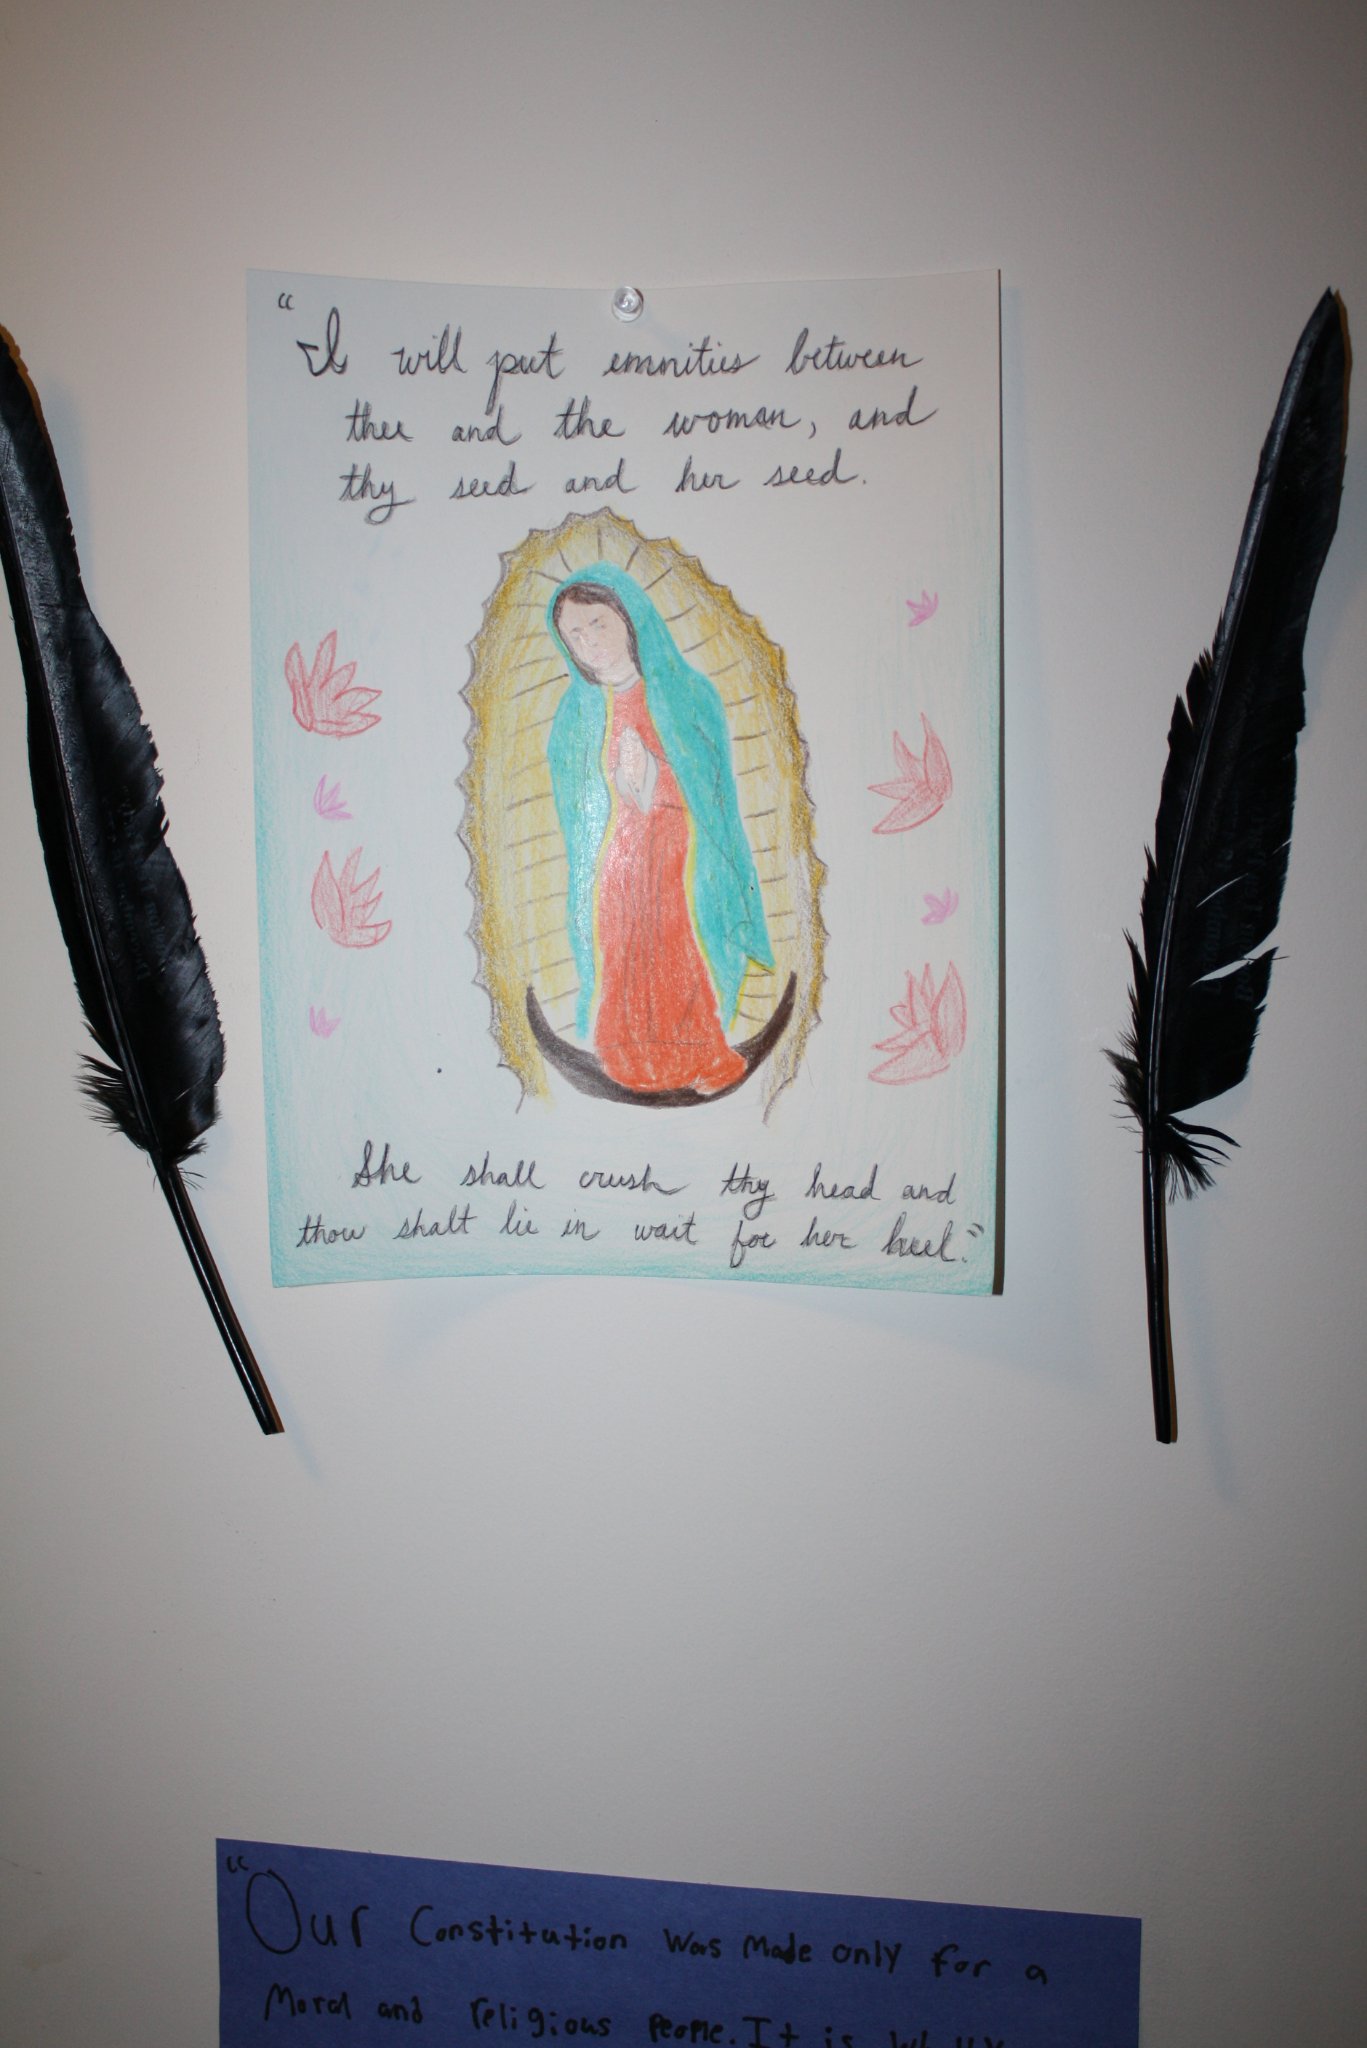 "I will put emnities between
thee and the woman, and
thy seed and her seed.
She shall crush thy head and
thou shalt lie in wait for her heel."
"Our Constitution was made only for a
Moral and religious people. It is wholly